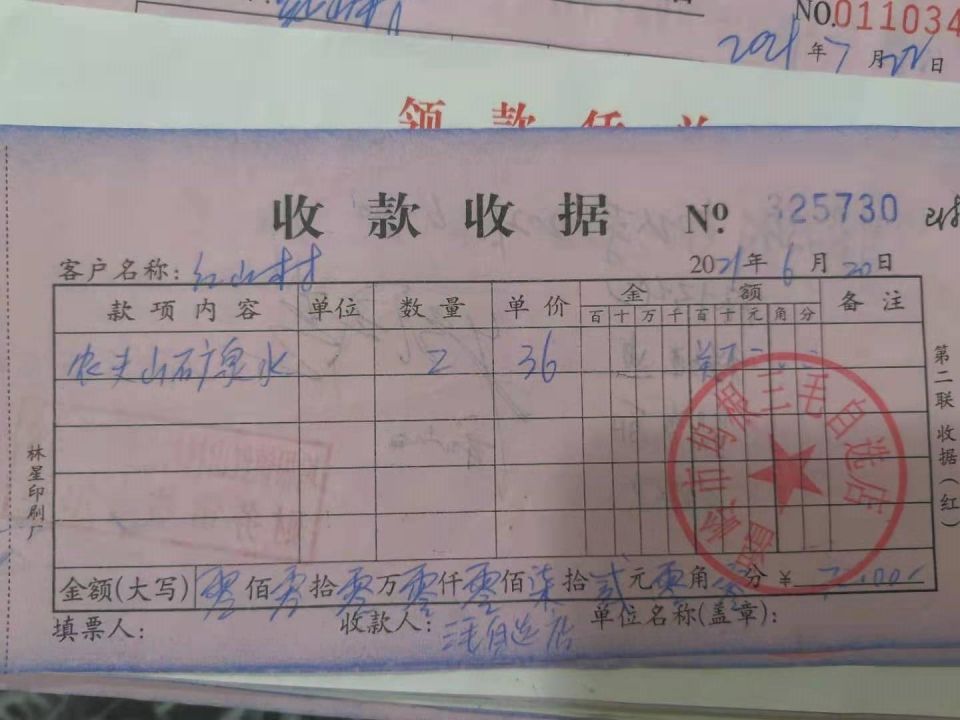 NO.011034
2021年7月22日
领款凭单
收款收据 Nº 325730
客户名称：红山村 2021年6月20日
款项内容 单位 数量 单价 金额 备注
百十万千百十元角分
农夫山矿泉水 2 36
金额(大写)零佰零拾零万零仟零佰柒拾贰元零角零分 ¥
填票人： 收款人：三毛自选店 单位名称(盖章)：
第二联 收据(红)
林星印刷厂
三毛自选店